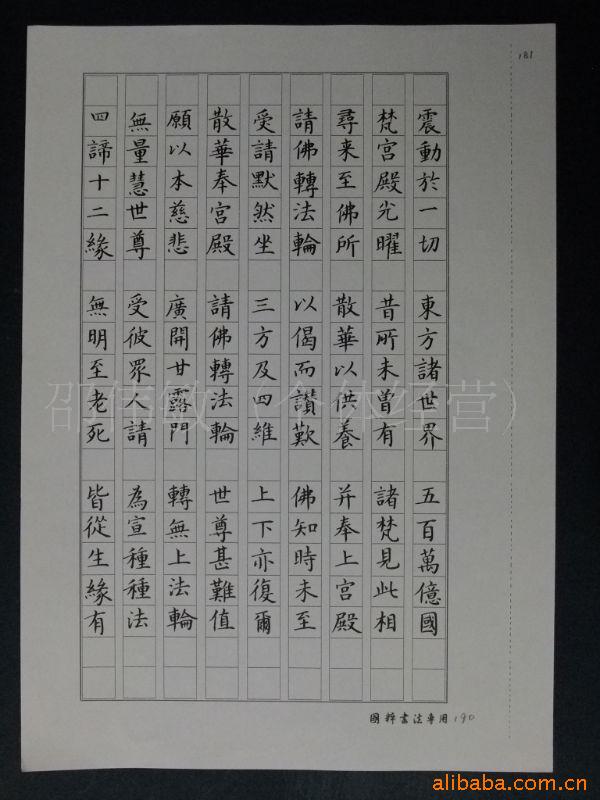 181
震動於一切 東方諸世界 五百萬億國
梵宮殿光曜 昔所未曾有 諸梵見此相
尋来至佛所 散華以供養 并奉上宮殿
請佛轉法輪 以偈而讃歎 佛知時未至
受請默然坐 三方及四維 上下亦復爾
散華奉宮殿 請佛轉法輪 世尊甚難值
願以本慈悲 廣開甘露門 轉無上法輪
無量慧世尊 受彼眾人請 為宣種種法
四諦十二緣 無明至老死 皆從生緣有
國粹書法專用 190
邵伟敏（个体经营）
alibaba.com.cn